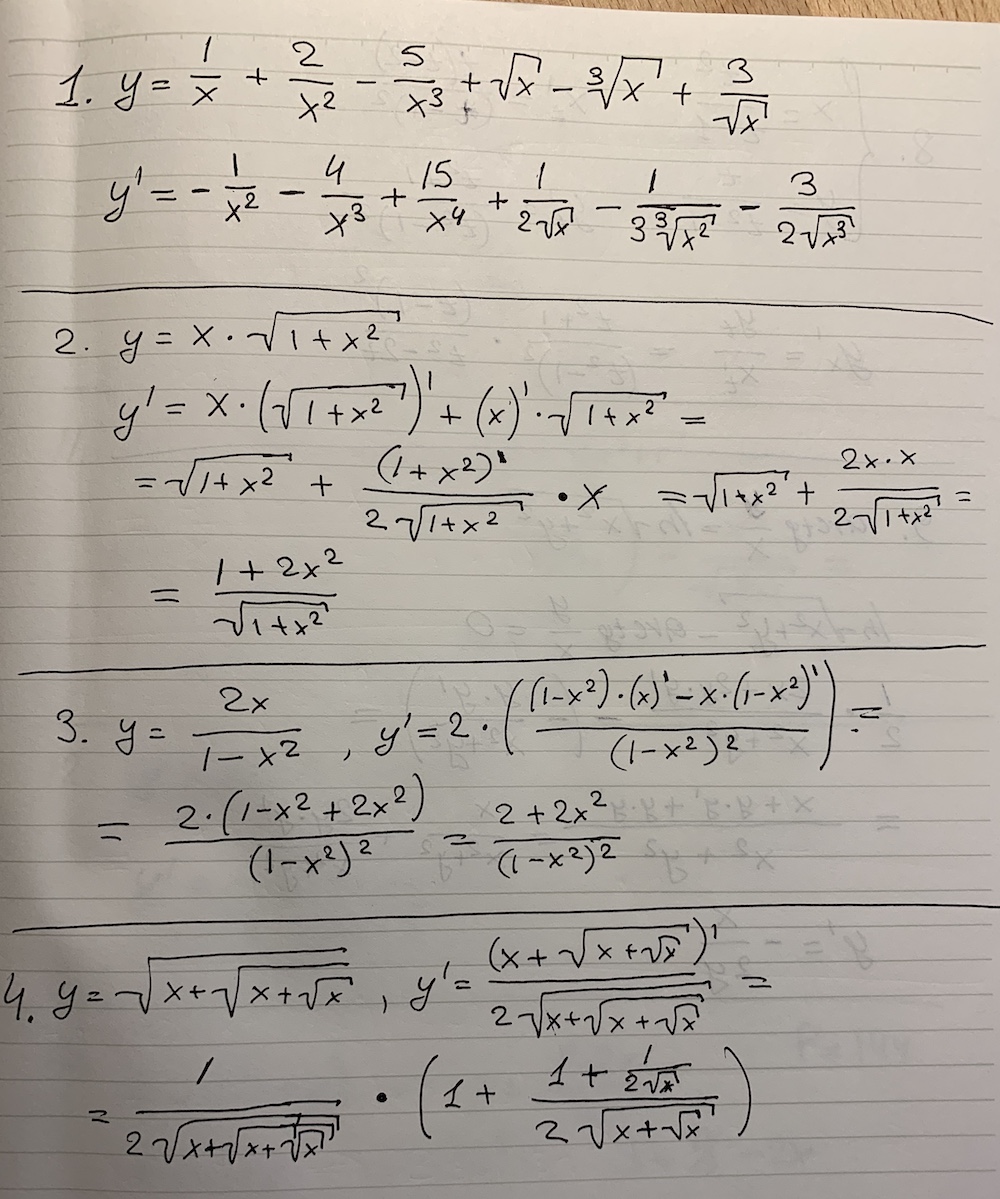 1. y = 1/x + 2/x² - 5/x³ + √x - ∛x + 3/√x
y' = - 1/x² - 4/x³ + 15/x⁴ + 1/(2√x) - 1/(3∛(x²)) - 3/(2√(x³))
2. y = x · √(1+x²)
y' = x · (√(1+x²))' + (x)' · √(1+x²) =
= √(1+x²) + (1+x²)'/(2√(1+x²)) · x = √(1+x²) + (2x·x)/(2√(1+x²)) =
= (1+2x²)/√(1+x²)
3. y = 2x/(1-x²) , y' = 2 · (((1-x²)·(x)' - x·(1-x²)')/(1-x²)²) =
= (2·(1-x²+2x²))/(1-x²)² = (2+2x²)/(1-x²)²
4. y = √(x+√(x+√x)) , y' = (x+√(x+√x))'/(2√(x+√(x+√x))) =
= 1/(2√(x+√(x+√x))) · (1 + (1 + 1/(2√x))/(2√(x+√x)))